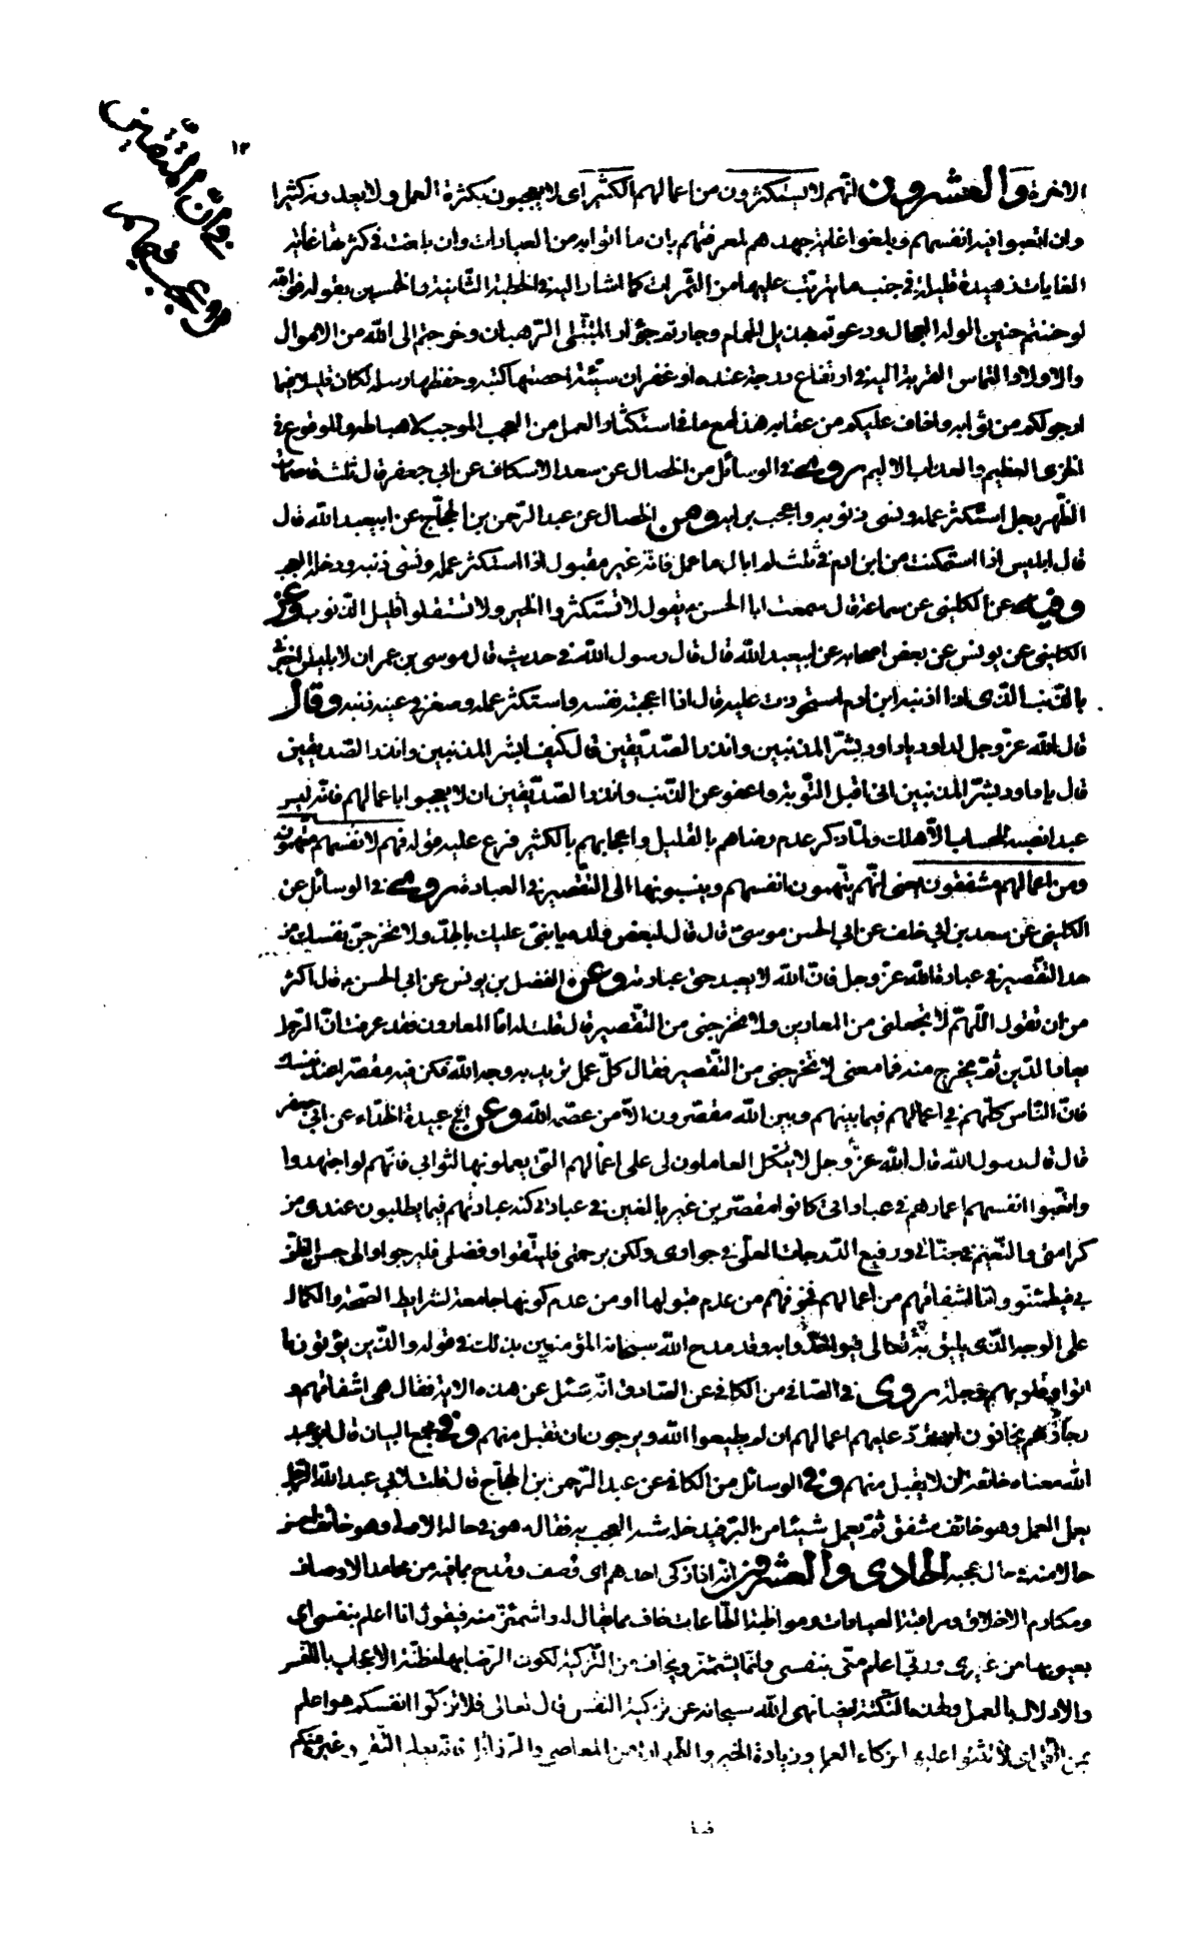 ١٣
في أنّ المتّقين
الاخرة والعشرون انّهم لا يستكثرون من اعمالهم الكثير اى لا يعجبون بكثرة العمل ولا يعدونه كثيرا
وان اتعبوا فيه انفسهم وبلغوا غاية جهدهم لمعرفتهم بان ما اتوا به من العبادات وان بلغت في كثرتها غاية
الغايات زهيدة قليلة في جنب ما يترتب عليها من الثمرات كما اشار اليه في الخطبة الثانية والخمسين بقوله فوالله
لو حننتم حنين الوله العجال ودعوتم بهديل الحمام وجارتم جؤار المتبتّلى الرّهبان وخرجتم الى الله من الاموال
والاولاد التماس القربة اليه في ارتفاع درجة عنده او غفران سيّئة احصتها كتبه وحفظها رسله لكان قليلا فيما
ارجو لكم من ثوابه واخاف عليكم من عقابه هذا مع ما في استكثار العمل من العجب الموجب لاحباطه والوقوع في
الخزى العظيم والعذاب الاليم روى في الوسائل من الخصال عن سعد الاسكاف عن ابي جعفر قال ثلث قاصمات
الظّهر رجل استكثر عمله ونسى ذنوبه واعجب برايه ومن الخصال عن عبد الرّحمن بن الحجّاج عن ابيعبد الله قال
قال ابليس اذا استمكنت من ابن ادم في ثلث لم ابال ما عمل فانه غير مقبول اذا استكثر عمله ونسى ذنبه ودخله العجب
وفيه عن الكلينى عن سماعة قال سمعت ابا الحسن يقول لا تستكثروا الخير ولا تستقلوا قليل الذّنوب وعن
الكلينى عن يونس عن بعض اصحابه عن ابيعبد الله قال قال رسول الله في حديث قال موسى بن عمران لابليس اخبرني
بالذّنب الّذى اذا اذنبه ابن ادم استحوذت عليه قال اذا اعجبته نفسه واستكثر عمله وصغر في عينه ذنبه وقال
قال الله عزّ وجل لداود يا داود بشّر المذنبين وانذر الصّدّيقين قال كيف ابشر المذنبين وانذر الصّدّيقين
قال يا داود بشّر المذنبين انى اقبل التّوبة واعفو عن الذّنب وانذر الصدّيقين ان لا يعجبوا باعمالهم فانه ليس
عبد انصبه للحساب الّا هلك ولمّا ذكر عدم رضاهم بالقليل واعجابهم بالكثير فرع عليه قوله فهم لانفسهم متهمون
ومن اعمالهم مشفقون يعنى انّهم يتّهمون انفسهم وينسبونها الى التّقصير في العبادة روى في الوسائل عن
الكلينى عن سعد بن ابي خلف عن ابي الحسن موسىٰ قال قال لبعض ولده يا بنىّ عليك بالجدّ ولا تخرجنّ نفسك من
حد التقصير في عبادة الله عزّ وجل فانّ الله لا يعبد حق عبادته وعن الفضل بن يونس عن ابي الحسن قال اكثر
من ان تقول اللّهمّ لا تجعلنى من المعارين ولا تخرجنى من التّقصير قال قلت له امّا المعارون فقد عرفت انّ الرّجل
يعار الدّين ثمّ يخرج منه فما معنى لا تخرجنى من التّقصير فقال كلّ عمل تريد به وجه الله فكن فيه مقصّرا عند نفسك
فانّ النّاس كلّهم في اعمالهم فيما بينهم وبين الله مقصّرون الّا من عصمه الله وعن ابي عبيدة الحذّاء عن ابي جعفر
قال قال رسول الله قال الله عزّ وجل لا يتّكل العاملون لى على اعمالهم التى يعملونها لثوابي فانّهم لو اجتهدوا
واتعبوا انفسهم اعمارهم في عبادتى كانوا مقصّرين غير بالغين في عبادتهم كنه عبادتى فيما يطلبون عندى من
كرامتى والنّعيم في جنّاتي ورفيع الدّرجات العلى في جوارى ولكن برحمتى فليثقوا وفضلى فليرجوا والى حسن الظّنّ
بي فليطمئنّوا وامّا اشفاقهم من اعمالهم فخوفهم من عدم قبولها او من عدم كونها جامعة لشرايط الصّحة والكمال
على الوجه الّذى يليق به تعالى وقد مدح الله سبحانه المؤمنين بذلك في قوله والّذين يؤتون ما
اتوا وقلوبهم وجلة روى في الصّافي من الكافي عن الصّادق انّه سئل عن هذه الاية فقال هى اشفاقهم و
رجاؤهم يخافون ان تردّ عليهم اعمالهم ان لم يطيعوا الله ويرجون ان تقبل منهم وفي مجمع البيان قال ابو عبد
الله معناه خائفة ان لا يقبل منهم وفي الوسائل من الكافي عن عبد الرّحمن بن الحجّاج قال قلت لابي عبد الله الرّجل
يعمل العمل وهو خائف مشفق ثمّ يعمل شيئا من البرّ فيدخله شبه العجب به فقال هو في حاله الاولى وهو خائف احسن
حالا منه في حال عجبه الحادى والعشرون انّه اذا زكى احدهم اى وصف ومدح بما فيه من محامد الاوصاف
ومكارم الاخلاق ومراقبة العبادات ومواظبة الطّاعات خاف مما يقال له واشمئزّ منه فيقول انا اعلم بنفسى اى
بعيوبها من غيرى وربّي اعلم منّى بنفسى وانّما يشمئزّ ويخاف من التّزكية لكون الرّضا بها مظنّة الاعجاب بالنّفس
والادلال بالعمل ولهذه النّكتة ايضا نهى الله سبحانه عن تزكية النّفس قال تعالى فلا تزكّوا انفسكم هو اعلم
بمن اتّقى اى لا تثنوا عليها بزكاء العمل وزيادة الخير والطّهارة من المعاصي والرّذائل فانه يعلم التّقىّ وغيره منكم